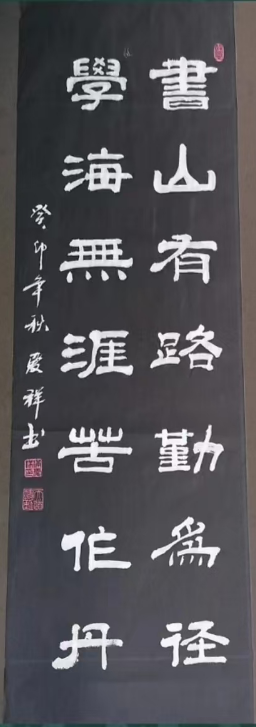 書山有路勤爲径
學海無涯苦作舟
癸卯年秋爱祥书